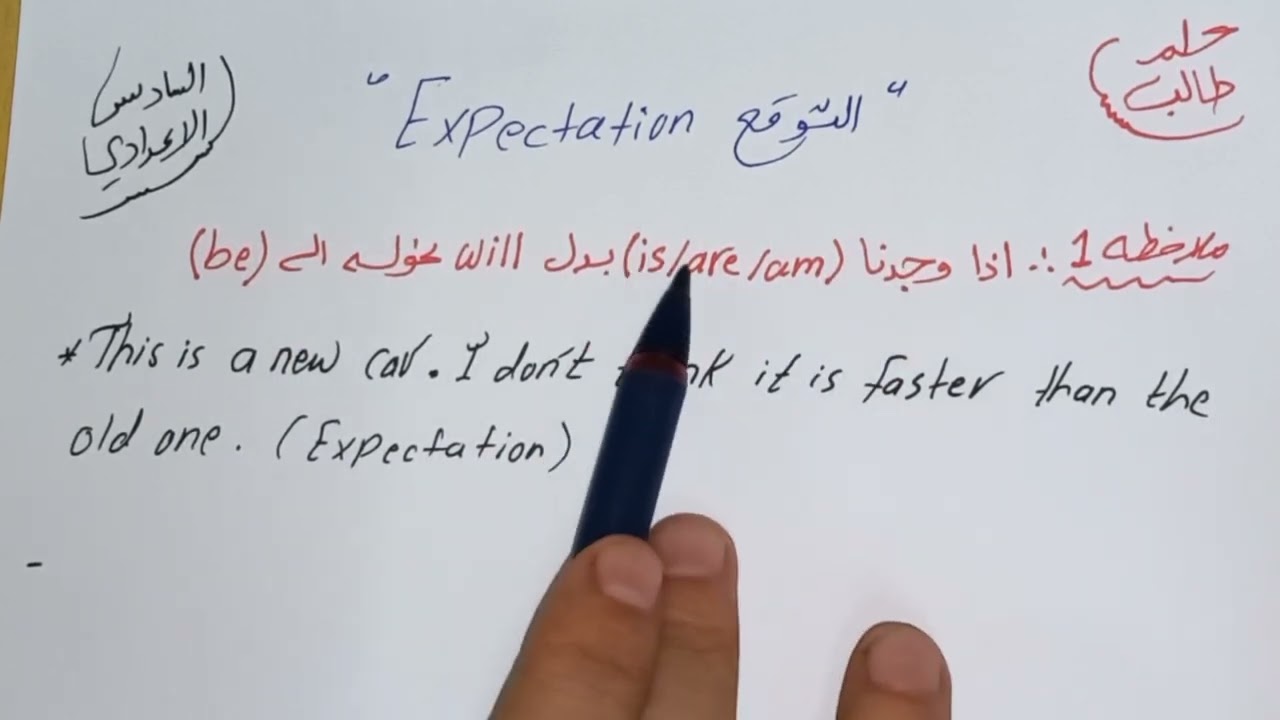 حلم
طالب
السادس
الاعدادي
" Expectation التوقع "
ملاحظه 1 ∴ اذا وجدنا (is/are/am) بدل will نحوله الى (be)
* This is a new car. I don't think it is faster than the
old one. (Expectation)
-